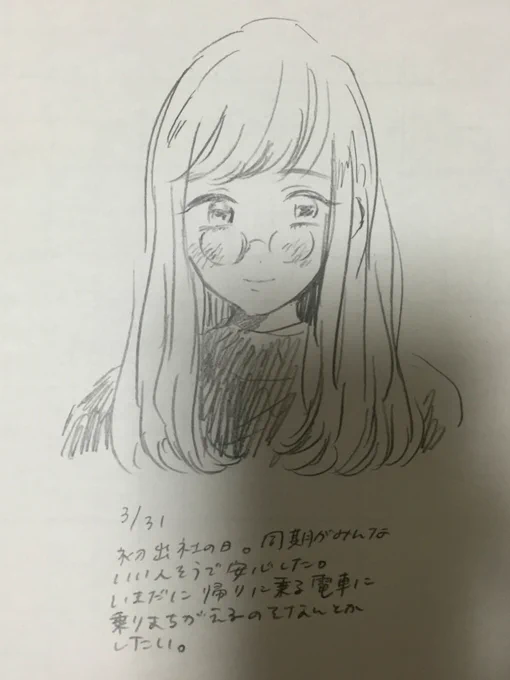 3/31
初出社の日。同期がみんな
いい人そうで安心した。
いまだに帰りに乗る電車に
乗りまちがえるのをなんとか
したい。